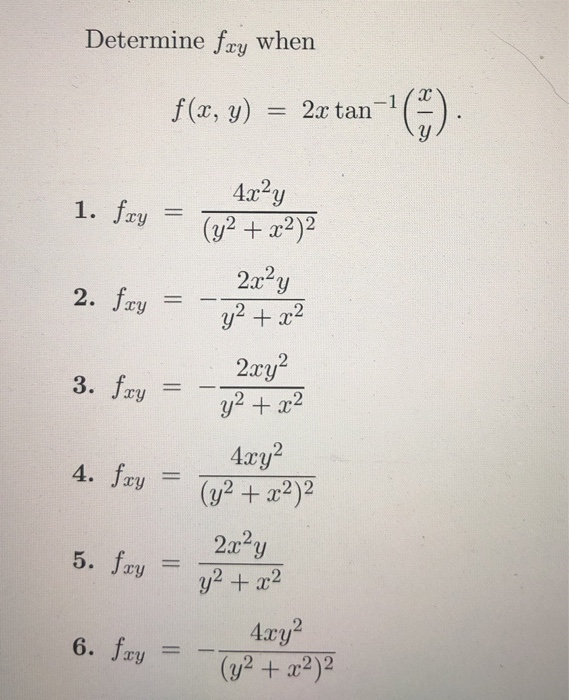 Determine f_{xy} when
f(x, y) = 2x tan^{-1}(x/y).
1. f_{xy} = 4x^2y/(y^2 + x^2)^2
2. f_{xy} = -2x^2y/(y^2 + x^2)
3. f_{xy} = -2xy^2/(y^2 + x^2)
4. f_{xy} = 4xy^2/(y^2 + x^2)^2
5. f_{xy} = 2x^2y/(y^2 + x^2)
6. f_{xy} = -4xy^2/(y^2 + x^2)^2